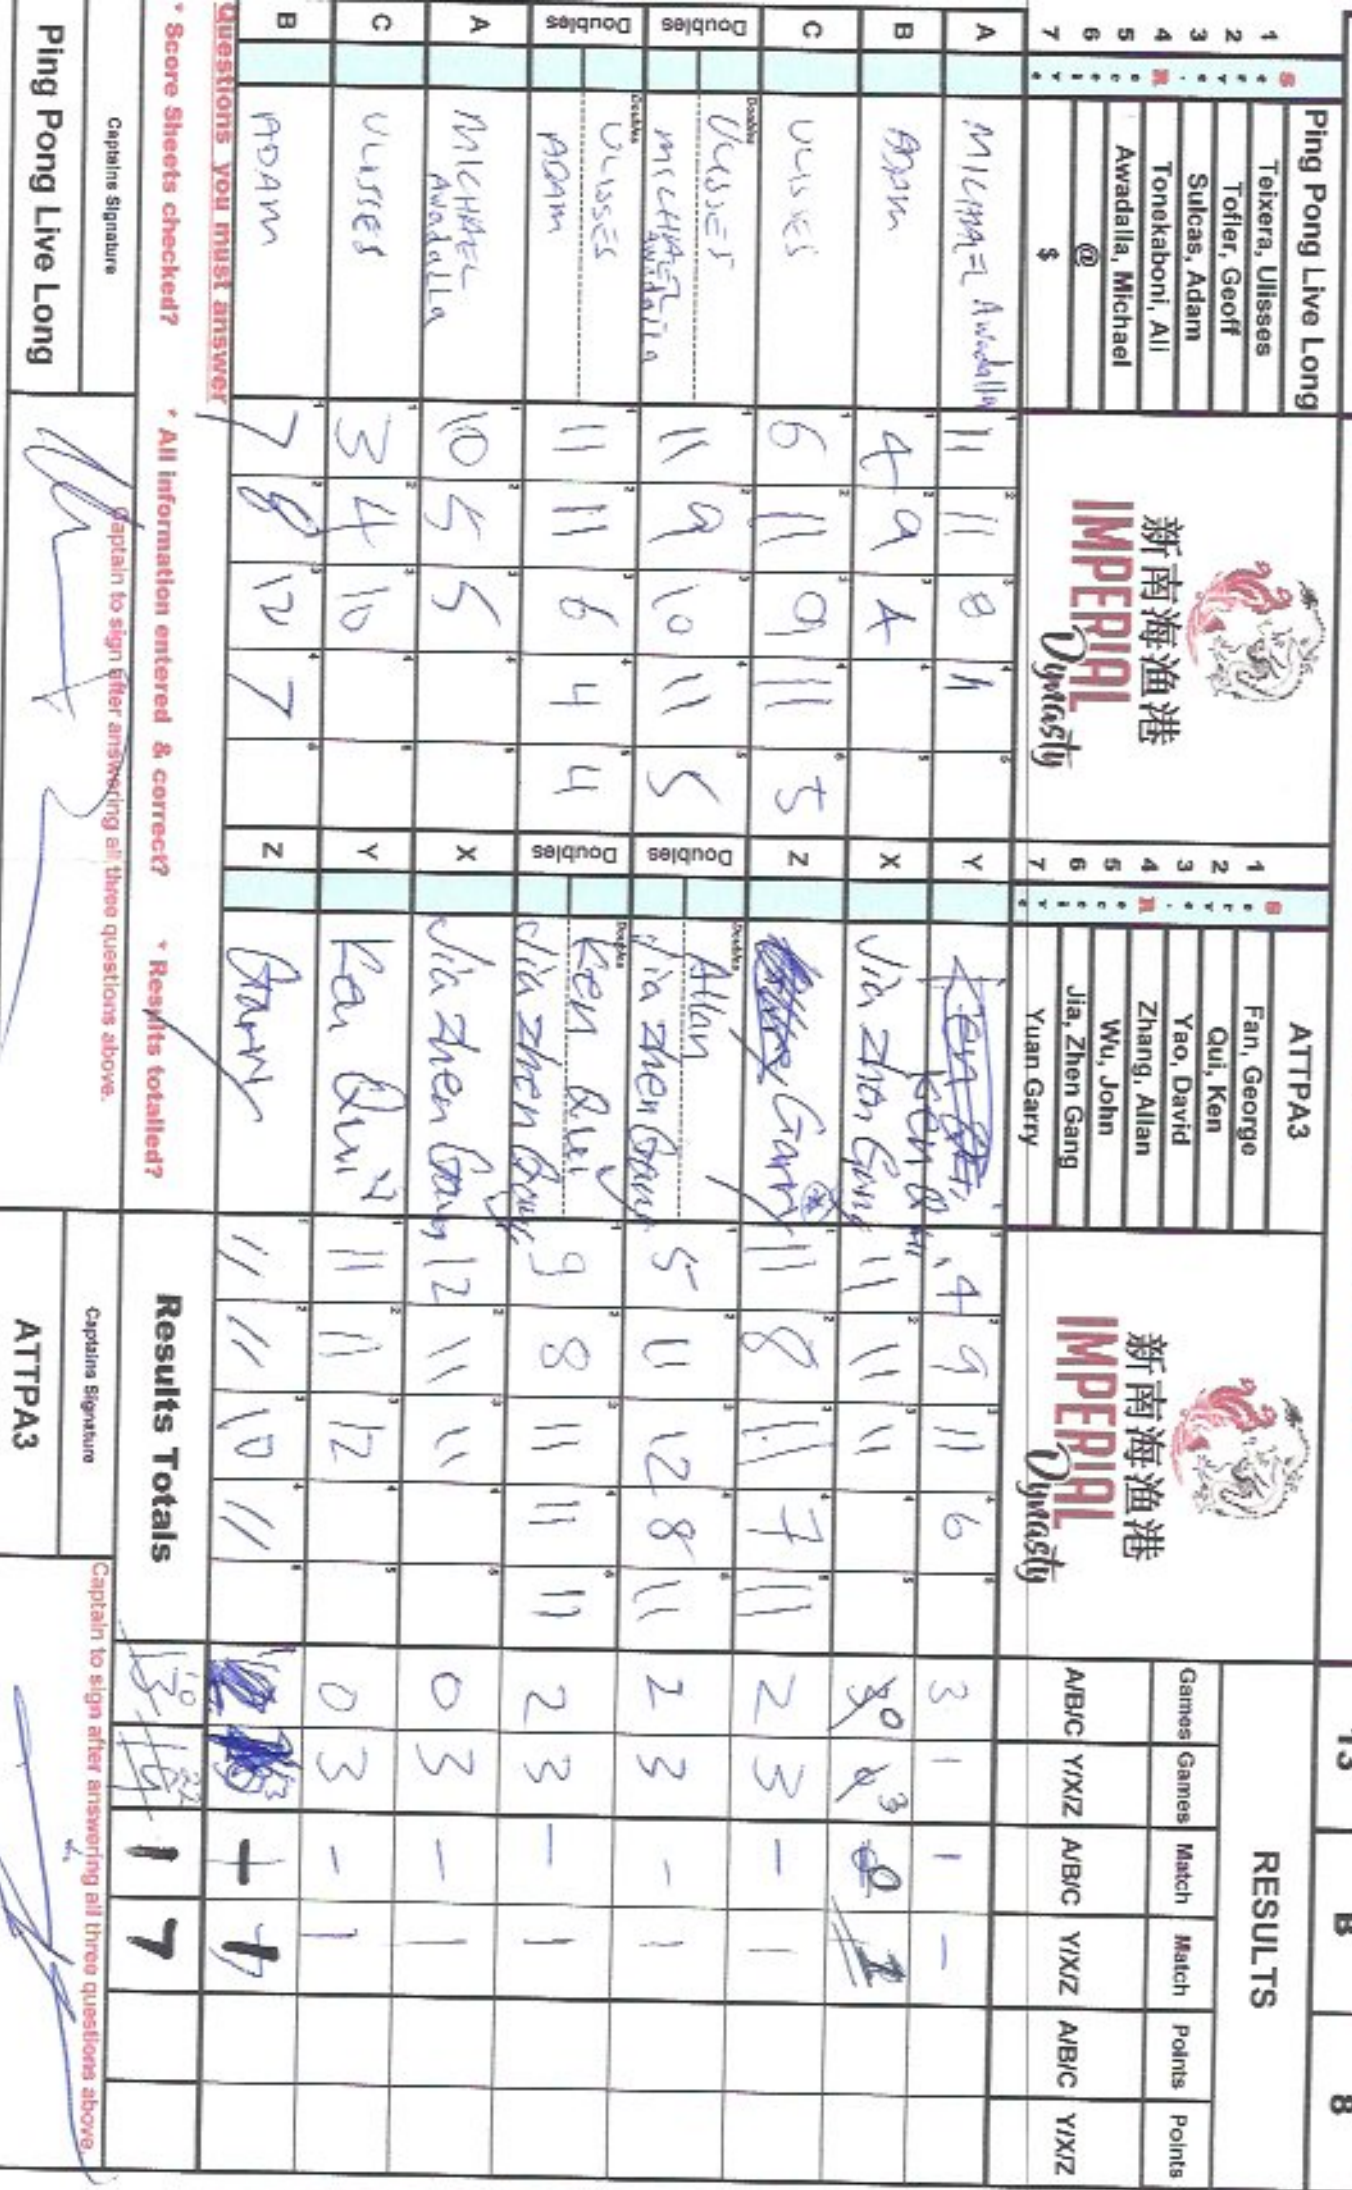 13 B 8
Ping Pong Live Long
1 Teixera, Ulisses
2 Tofler, Geoff
3 Sulcas, Adam
4 Tonekaboni, Ali
5 Awadalla, Michael
6 @
7 $
新南海渔港
IMPERIAL
Dynasty
ATTPA3
1 Fan, George
2 Qui, Ken
3 Yao, David
4 Zhang, Allan
5 Wu, John
6 Jia, Zhen Gang
7 Yuan Garry
新南海渔港
IMPERIAL
Dynasty
RESULTS
Games Games Match Match Points Points
A/B/C Y/X/Z A/B/C Y/X/Z A/B/C Y/X/Z
A MICHAEL Awadalla 11 11 8 11 Y Ken Qui 4 9 11 6 3 1 1 -
B ADAM 4 9 4 X Jia Zhen Gang 11 11 11 0 3 0 1
C ULISSES 6 11 9 11 5 Z Garry 11 8 11 7 11 2 3 - 1
Doubles Doubles ULISSES 11 9 10 11 5 Doubles Doubles Allan 5 11 12 8 11 2 3 - 1
MICHAEL Awadalla Jia Zhen Gang
Doubles Doubles ULISSES 11 11 6 4 4 Doubles Doubles Ken Qui 9 8 11 11 11 2 3 - 1
ADAM Jia Zhen Gang
A MICHAEL Awadalla 10 5 5 X Jia Zhen Gang 12 11 11 0 3 - 1
C ULISSES 3 4 10 Y Ken Qui 11 11 12 0 3 - 1
B ADAM 7 8 12 7 Z Garry 11 11 10 11 1 3
Questions you must answer
* Score Sheets checked? * All information entered & correct? * Results totalled?
Results Totals 10 22 1 7
Captains Signature
Captain to sign after answering all three questions above.
Ping Pong Live Long
Captains Signature
Captain to sign after answering all three questions above.
ATTPA3